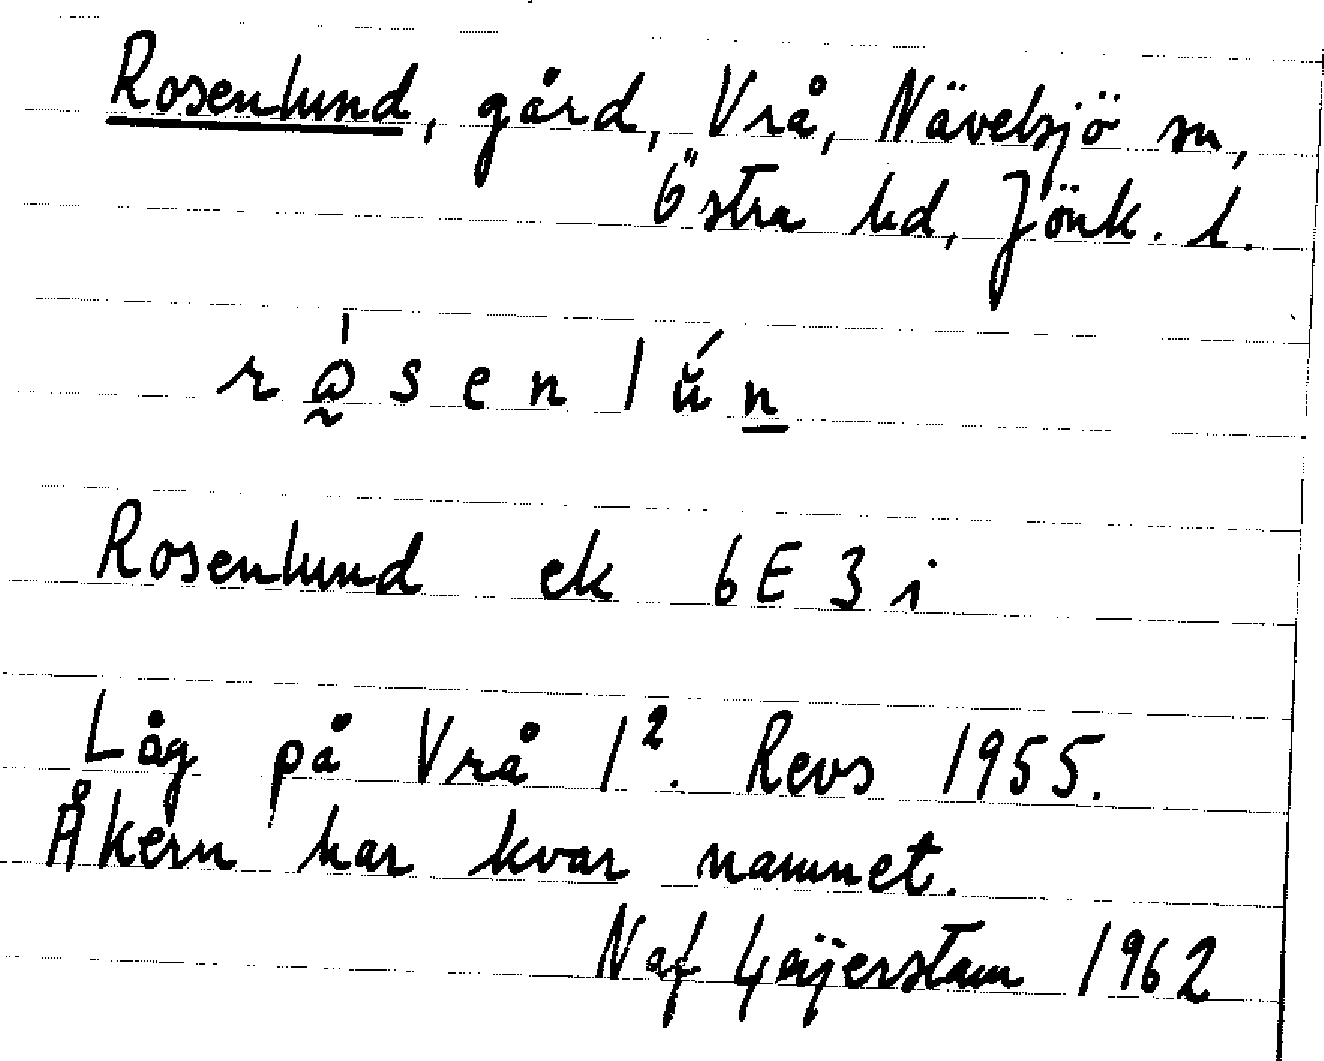 Rosenlund, gård, Vrå, Nävelsjö sn,
Östra hd, Jönk. l.
rå̰̍senlŭ́n̲
Rosenlund ek 6E3i
Låg på Vrå 1². Revs 1955.
Åkern har kvar namnet.
N af Geijerstam 1962